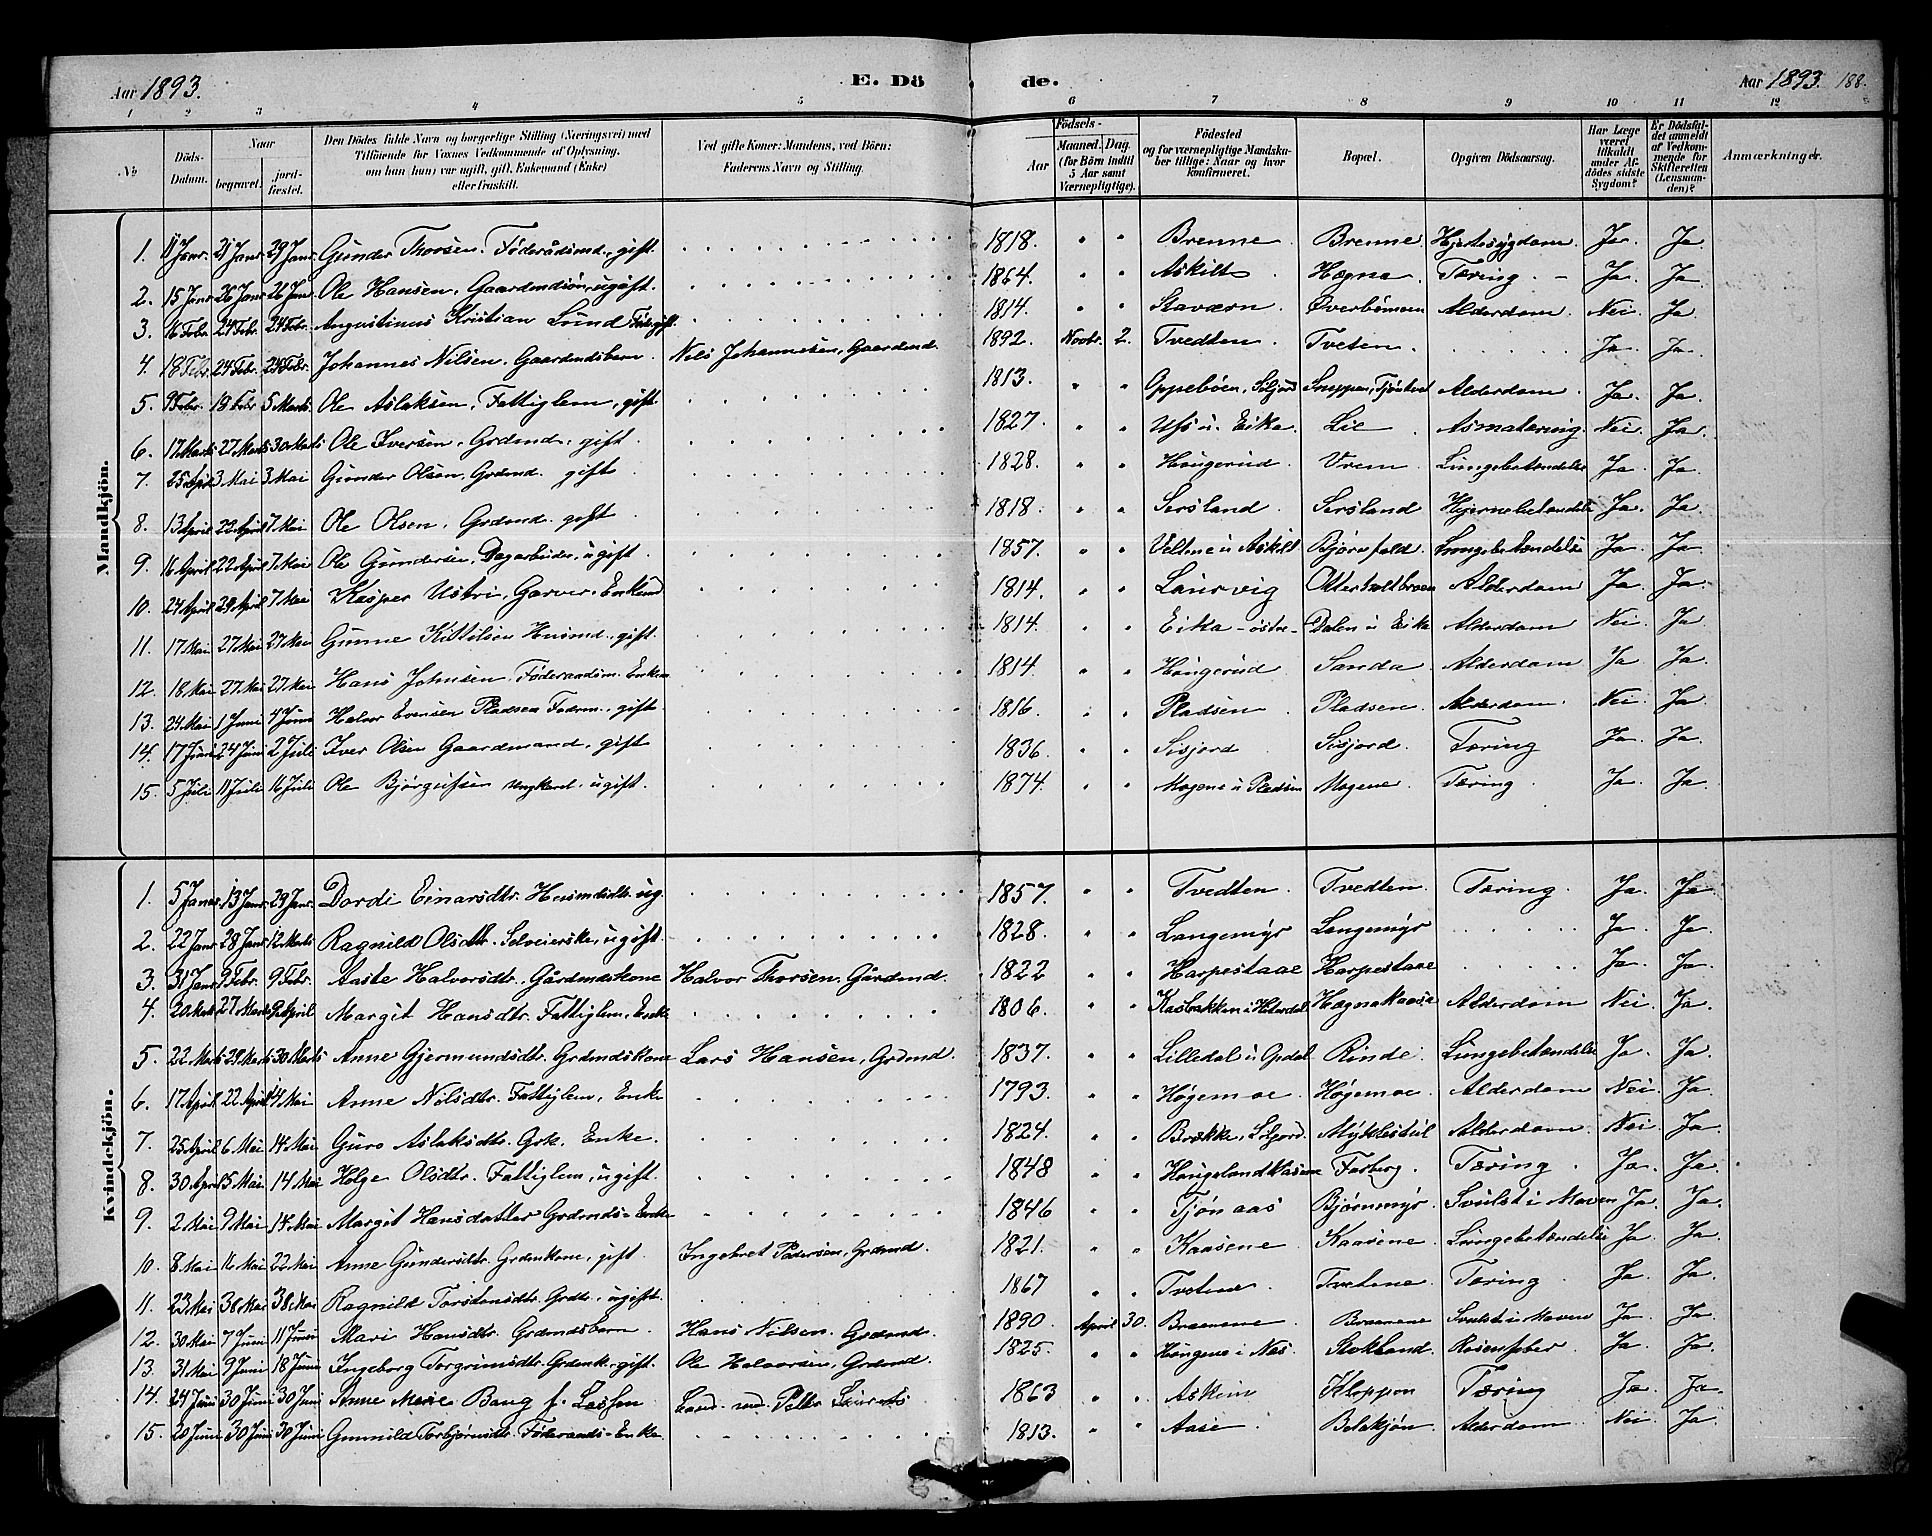 Aar 1893. E. Dö de. Aar 1893. 188.
1 2 3 4 5 6 7 8 9 10 11 12
No Döds-Datum. Naar begravet. jordfæstet. Den Dödes fulde Navn og borgerlige Stilling (Næringsvei) med Tilföiende for Voxnes Vedkommende af Oplysning, om han (hun) var ugift, gift, Enkemand (Enke) eller fraskilt. Ved gifte Koner: Mandens, ved Börn: Faderens Navn og Stilling. Födsels- Aar Maaned. Dag. (for Börn indtil 5 Aar samt Værnepligtige). Födested og for værnepligtige Mandskaber tillige: Naar og hvor konfirmeret. Bopæl. Opgiven Dödsaarsag. Har Læge været tilkaldt under Afdödes sidste Sygdom? Er Dödsfaldet anmeldt af Vedkommende for Skifteretten (Lensmanden)? Anmærkninger.
Mandkjön.
1. 11 Janr. 21 Janr 29 Janr Gunder Thorsen. Föderådsmd., gift 1818. " " Brenne Brenne Hjertesygdom. Ja. Ja
2. 15 Janr 26 Janr 26 Janr Ole Hansen, Gaardmdsön, ugift. 1864. " " Askilt Hægna Tæring – Ja. Ja
3. 16 Febr. 24 Febr. 24 Febr. Augustinus Kristian Lund gift. 1814. " " Staværn Øverbömoen Alderdom. Nei. Ja
4. 18 Febr. 24 Febr. 24 Febr. Johannes Nilsen. Gaardmdsbarn. Nils Johannesen, Gaardmd. 1892. Novbr. 2. Tvedten Tveten. Ja. Ja.
5. 9 Febr. 18 Febr 5 Marts Ole Aslaksen, Fattiglem, gift. 1813. " " Oppeböen, Siljord Alderdom Ja. Ja.
6. 17 Marts 27 Marts 30 Marts Ole Iversen, Grdmd. gift. 1827. " " Ufs u. Eika. Lie Asmatæring. Nei. Ja.
7. 25 April 3 Mai 3 Mai Gunder Olsen, Grdmd. gift 1828. " " Haugerud Vrem Lungebetændelse Ja. Ja.
8. 13 April 22 April 7 Mai Ole Olsen, Grdmd. gift 1818. " " Sersland Sersland Hjernebetændelse Ja. Ja
9. 16 April 22 April 7 Mai Ole Gundersen, Dagarbeider, ugift. 1857. " " Veltene u Askilt Lungebetændelse Ja. Ja
10. 24 April 29 April 7 Mai Kasper Ustri, Garver. Enkemd 1814. " " Laurvig Otterholtbroen Alderdom Ja. Ja.
11. 17 Mai 27 Mai 27 Mai Gunne Kittilsen Husmd., gift. 1814. " " Eika – östre – Dalen u Eika Alderdom Nei. Ja.
12. 18 Mai 27 Mai 27 Mai Hans Johnsen. Föderaadsm. Enkem 1814. " " Haugerud Sanda Alderdom Ja Ja.
13. 24 Mai 1 Juni 4 Juni Halvor Evensen Pladsen Föderm., gift. 1816. " " Pladsen Pladsen. Alderdom. Nei. Ja
14. 17 Juni 24 Juni 2 Juli Iver Olsen Gaardmand, gift 1836. " " Sisjord Sisjord. Tæring Ja. Ja.
15. 5 Juli 11 Juli 16 Juli Ole Björgufsen Ungkarl, ugift. 1874. " " Mogene u Pladsen Mogene Tæring Ja. Ja.
Kvindekjön.
1. 5 Janr. 13 Janr. 29 Janr. Dordi Einarsdtr. Husmdsdtr. ug. 1857. " " Tvedten. Tvedten Tæring. Ja. Ja
2. 22 Janr 28 Janr 12 Marts Ragnild Olsdtr. Selveierske, ugift. 1828. " " Langemyr Langemyr Ja. Ja.
3. 31 Janr 9 Febr. 9 Febr. Aaste Halvorsdtr. Gårdmdskone Halvor Thorsen. Gårdmd. 1822 " " Harpestaae Harpestaae Ja. Ja.
4. 20 Marts 27 Marts 2 April Margit Hansdtr. Fattiglem, Enke 1806. " " Kasbakken i Hiterdal Hægnakaasa Alderdom Nei. Ja.
5. 22 Marts 29 Marts 30 Marts Anne Gjermundsdtr. Grdmdskone Lars Hansen, Grdmd. 1837. " " Lilledal u Opdal Rinde. Lungebetændelse Ja. Ja.
6. 17 April 22 April 14 Mai Anne Nilsdtr. Fattiglem, Enke 1793. " " Høgemoe. Høgemoe. Alderdom Nei. Ja.
7. 25 April 6 Mai 14 Mai Guro Aslaksdtr. Grk. Enke. 1824. " " Brække, Siljord. Myklestul Alderdom. Nei Ja.
8. 30 April 5 Mai 14 Mai Helge Olsdtr. Fattiglem, ugift. 1848 " " Haugelandkaasene Farberg. Tæring. Ja. Ja
9. 2 Mai 9 Mai 14 Mai Margit Hansdatter Grdmds-Enke 1846 " " Tjönaas Bjørnmyr. Svulst i Maven Ja. Ja.
10. 8 Mai 16 Mai 22 Mai Anne Gundersdtr. Grdmkone, gift. Ingebret Pedersen, Grdmd. 1821. " " Kaasene Kaasene. Lungebetændelse Ja. Ja.
11. 23 Mai 38 Mai 38 Mai Ragnild Torstensdtr. Grdtr., ugift. 1867 " " Tvetene Tvetene. Tæring. Ja. Ja.
12. 30 Mai 7 Juni 11 Juni Mari Hansdtr. Grdmdsbarn. Hans Nilsen. Grdmd. 1890. April 30. Braanene Braanene Svulst i Maven Ja. Ja.
13. 31 Mai 9 Juni 18 Juni Ingeborg Torgrimsdtr. Grdmk., gift. Ole Halvorsen, Grdmd. 1825. " " Haugene i Næs. Stokland Rosenfeber Ja. Ja.
14. 24 Juni 30 Juni 30 Juni Anne Marie Bang f. Lassen 1863 " " Askim Kloppen Tæring Ja. Ja.
15. 20 Juni 30 Juni 30 Juni Gunnild Torbjørnsdtr. Føderaads-Enke 1813. " " Aase Bolskjøn Alderdom. Nei. Ja